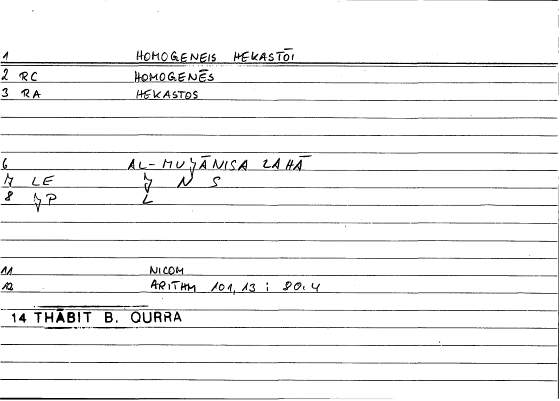 1 HOMOGENEIS HEKASTŌI
2 RC HOMOGENĒS
3 RA HEKASTOS
6 AL-MUǦĀNISA LAHĀ
7 LE Ǧ N S
8 ǦP L
11 NICOM
12 ARITHM 101,13 : 80.4
14 THĀBIT B. QURRA